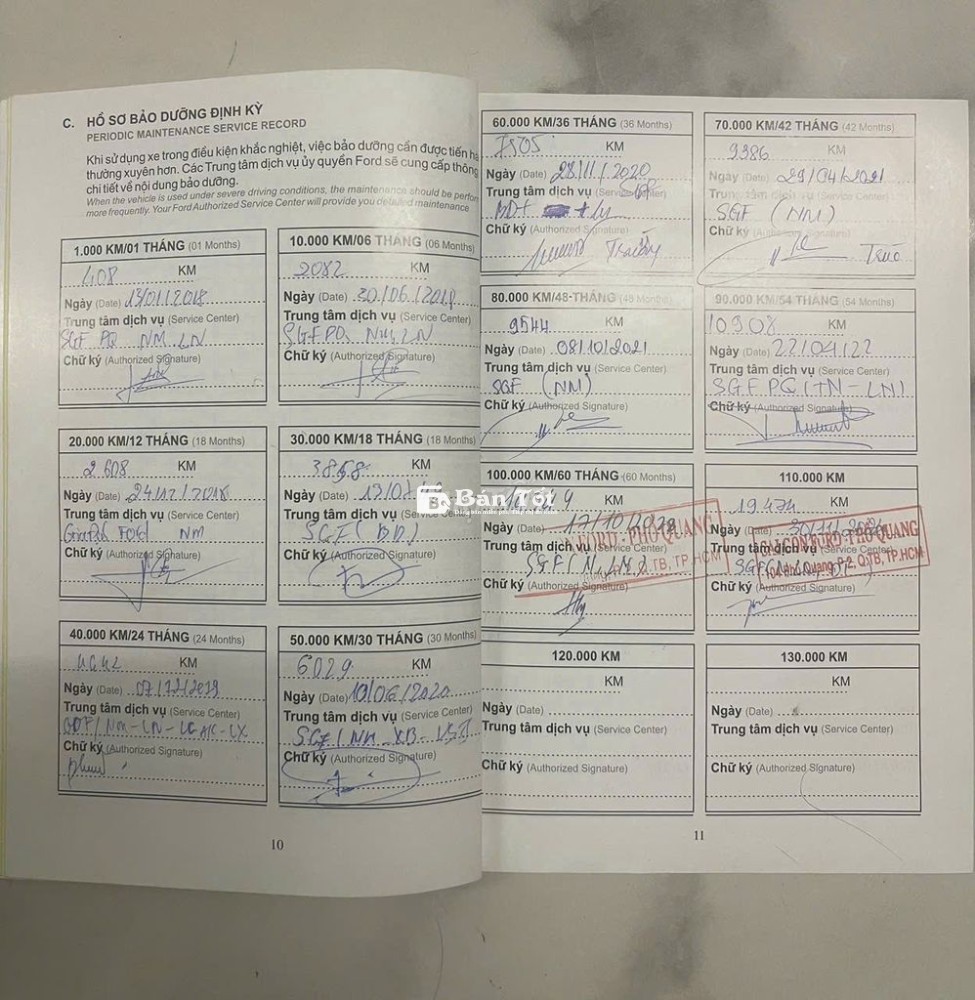 C. HỒ SƠ BẢO DƯỠNG ĐỊNH KỲ
PERIODIC MAINTENANCE SERVICE RECORD
Khi sử dụng xe trong điều kiện khắc nghiệt, việc bảo dưỡng cần được tiến
thường xuyên hơn. Các Trung tâm dịch vụ ủy quyền Ford sẽ cung cấp thông
chi tiết về nội dung bảo dưỡng.
When the vehicle is used under severe driving conditions, the maintenance should be
more frequently. Your Ford Authorized Service Center will provide you detailed maintenance
1.000 KM/01 THÁNG (01 Months)
408 KM
Ngày (Date) 13/01/2018
Trung tâm dịch vụ (Service Center)
SGF PQ NM LN
Chữ ký (Authorized Signature)
10.000 KM/06 THÁNG (06 Months)
2082 KM
Ngày (Date) 30/06/2018
Trung tâm dịch vụ (Service Center)
SGFPQ NM LN
Chữ ký (Authorized Signature)
20.000 KM/12 THÁNG (18 Months)
2608 KM
Ngày (Date) 24/12/2018
Trung tâm dịch vụ (Service Center)
FORD NM
Chữ ký (Authorized Signature)
30.000 KM/18 THÁNG (18 Months)
3858 KM
Ngày (Date)
Trung tâm dịch vụ (Service Center)
SGF (BD)
Chữ ký (Authorized Signature)
40.000 KM/24 THÁNG (24 Months)
KM
Ngày (Date) 07/12/2019
Trung tâm dịch vụ (Service Center)
Chữ ký (Authorized Signature)
50.000 KM/30 THÁNG (30 Months)
6029 KM
Ngày (Date) 10/06/2020
Trung tâm dịch vụ (Service Center)
Chữ ký (Authorized Signature)
10
60.000 KM/36 THÁNG (36 Months)
7505 KM
Ngày (Date) 28/11/2020
Trung tâm dịch vụ (Service Center)
Chữ ký (Authorized Signature)
70.000 KM/42 THÁNG (42 Months)
9386 KM
Ngày (Date) 29/04/2021
Trung tâm dịch vụ (Service Center)
SGF (NM)
Chữ ký (Authorized Signature)
80.000 KM/48 THÁNG (48 Months)
9544 KM
Ngày (Date) 08/10/2021
Trung tâm dịch vụ (Service Center)
SGF (NM)
Chữ ký (Authorized Signature)
90.000 KM/54 THÁNG (54 Months)
10908 KM
Ngày (Date) 22/04/22
Trung tâm dịch vụ (Service Center)
SGF PQ
Chữ ký (Authorized Signature)
100.000 KM/60 THÁNG (60 Months)
KM
Ngày (Date) 17/10/
Trung tâm dịch vụ (Service Center)
Chữ ký (Authorized Signature)
FORD - PHÚ QUANG
TB, TP.HCM
110.000 KM
19.474 KM
Ngày (Date)
Trung tâm dịch vụ (Service Center)
Chữ ký (Authorized Signature)
SÀI GÒN FORD - PHỔ QUANG
Phổ Quang, P.2, Q.TB, TP.HCM
120.000 KM
KM
Ngày (Date)
Trung tâm dịch vụ (Service Center)
Chữ ký (Authorized Signature)
130.000 KM
KM
Ngày (Date)
Trung tâm dịch vụ (Service Center)
Chữ ký (Authorized Signature)
11
Bán Tốt